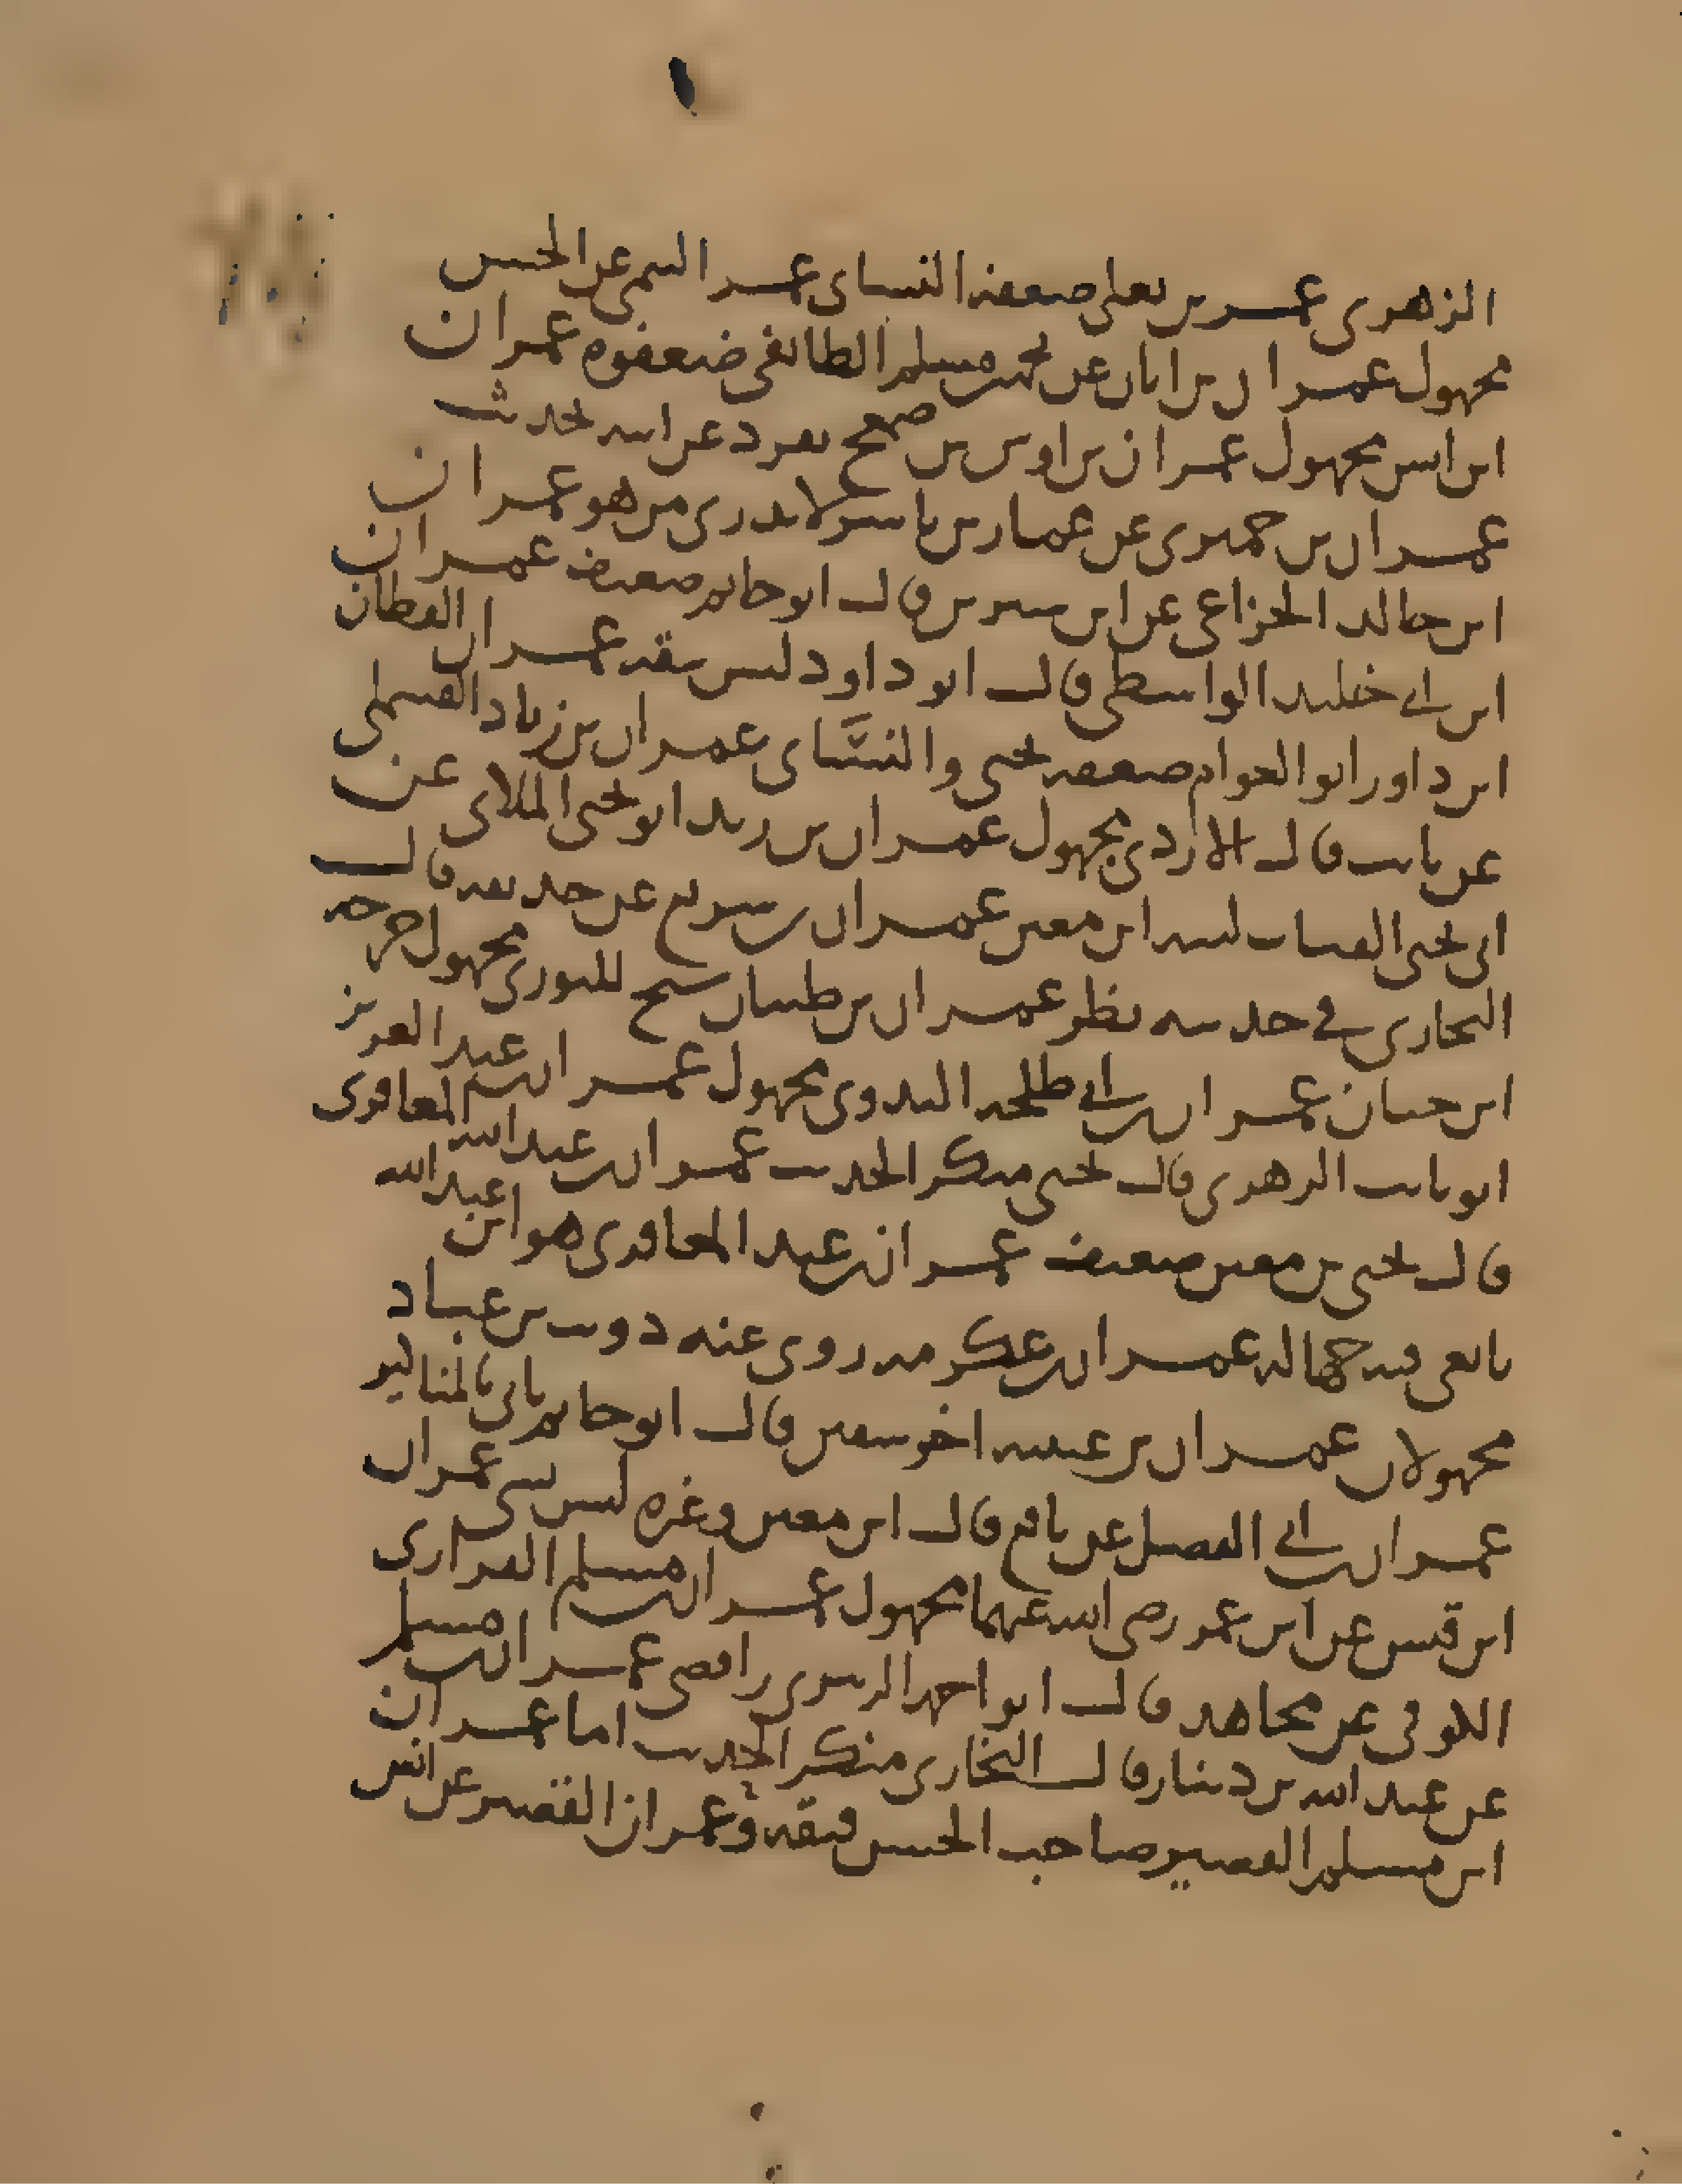 الزهري عمر بن يعلى ضعفه النسائي عمر التيمي عن الحسن
مجهول عمران بن ابان عن محمد بن مسلم الطائفي ضعفوه عمران
ابن انس مجهول عمران بن اوس بن ضمعج تفرد عن ابيه بحديث
عمران بن حميري عن عمار بن ياسر لا يدرى من هو عمران
ابن خالد الخزاعي عن ابن سيرين قال ابو حاتم ضعيف عمران
ابن ابي خليد الواسطي قال ابو داود ليس بثقة عمران القطان
ابن داور ابو العوام ضعفه يحيى والنسائي عمران بن زياد القسملي
عن ثابت قال الازدي مجهول عمران بن زيد ابو يحيى الملائي عن
ابي يحيى القتات لينه ابن معين عمران بن سريع عن حذيفة قال
البخاري في حديثه نظر عمران بن ظبيان شيخ للثوري مجهول خرجه
ابن حبان عمران بن ابي طلحة البدوي مجهول عمران بن عبد العزيز
ابو ثابت الزهري قال يحيى منكر الحديث عمران بن عبد الله المعافري
قال يحيى بن معين ضعيف عمران بن عبد المعافري هو ابن عبد الله
تابعي فيه جهالة عمران بن عكرمة روى عنه دويت بن عباد
مجهولان عمران بن عيينة اخو سفين قال ابو حاتم ياتي بالمناكير
عمران بن ابي الفضل عن نافع قال ابن معين وغيره ليس بشي عمران
ابن قيس عن ابن عمر رضي الله عنهما مجهول عمران بن مسلم الفزاري
الكوفي عن مجاهد قال ابو احمد الزبيري رافضي عمران بن مسلم
عن عبد الله بن دينار قال البخاري منكر الحديث اما عمران
ابن مسلم القصير صاحب الحسن فثقة وعمران القصير عن انس